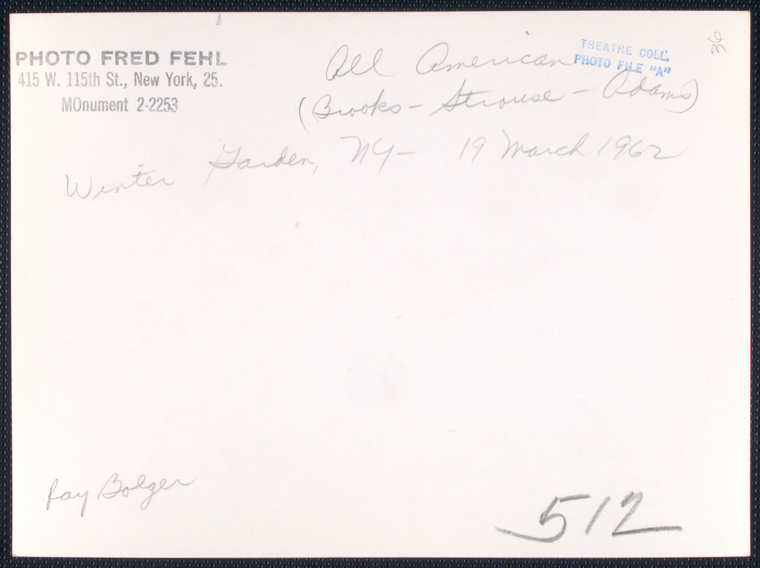 PHOTO FRED FEHL
415 W. 115th St., New York, 25.
MOnument 2-2253
All American
THEATRE COLL.
PHOTO FILE "A"
36
(Brooks - Strouse - Adams)
Winter Garden, NY - 19 March 1962
Ray Bolger
512